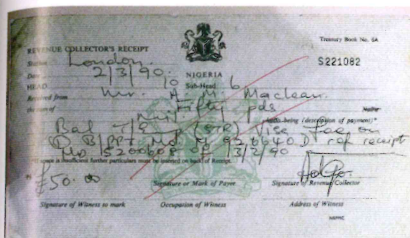 Treasury Book No. 6A
REVENUE COLLECTOR'S RECEIPT
Station London
S221082
Date 2/3/90
NIGERIA
HEAD 10 Sub-Head 6
Received from Mr. A. M. Maclean
the sum of Fifty pds
being (description of payment)*
Bal T/E (STR) Visa Fee on
B/PPT No
ref receipt
No
*If space is insufficient further particulars must be entered on back of Receipt.
£50.00
Signature or Mark of Payer
Signature of Revenue Collector
Signature of Witness to mark
Occupation of Witness
Address of Witness